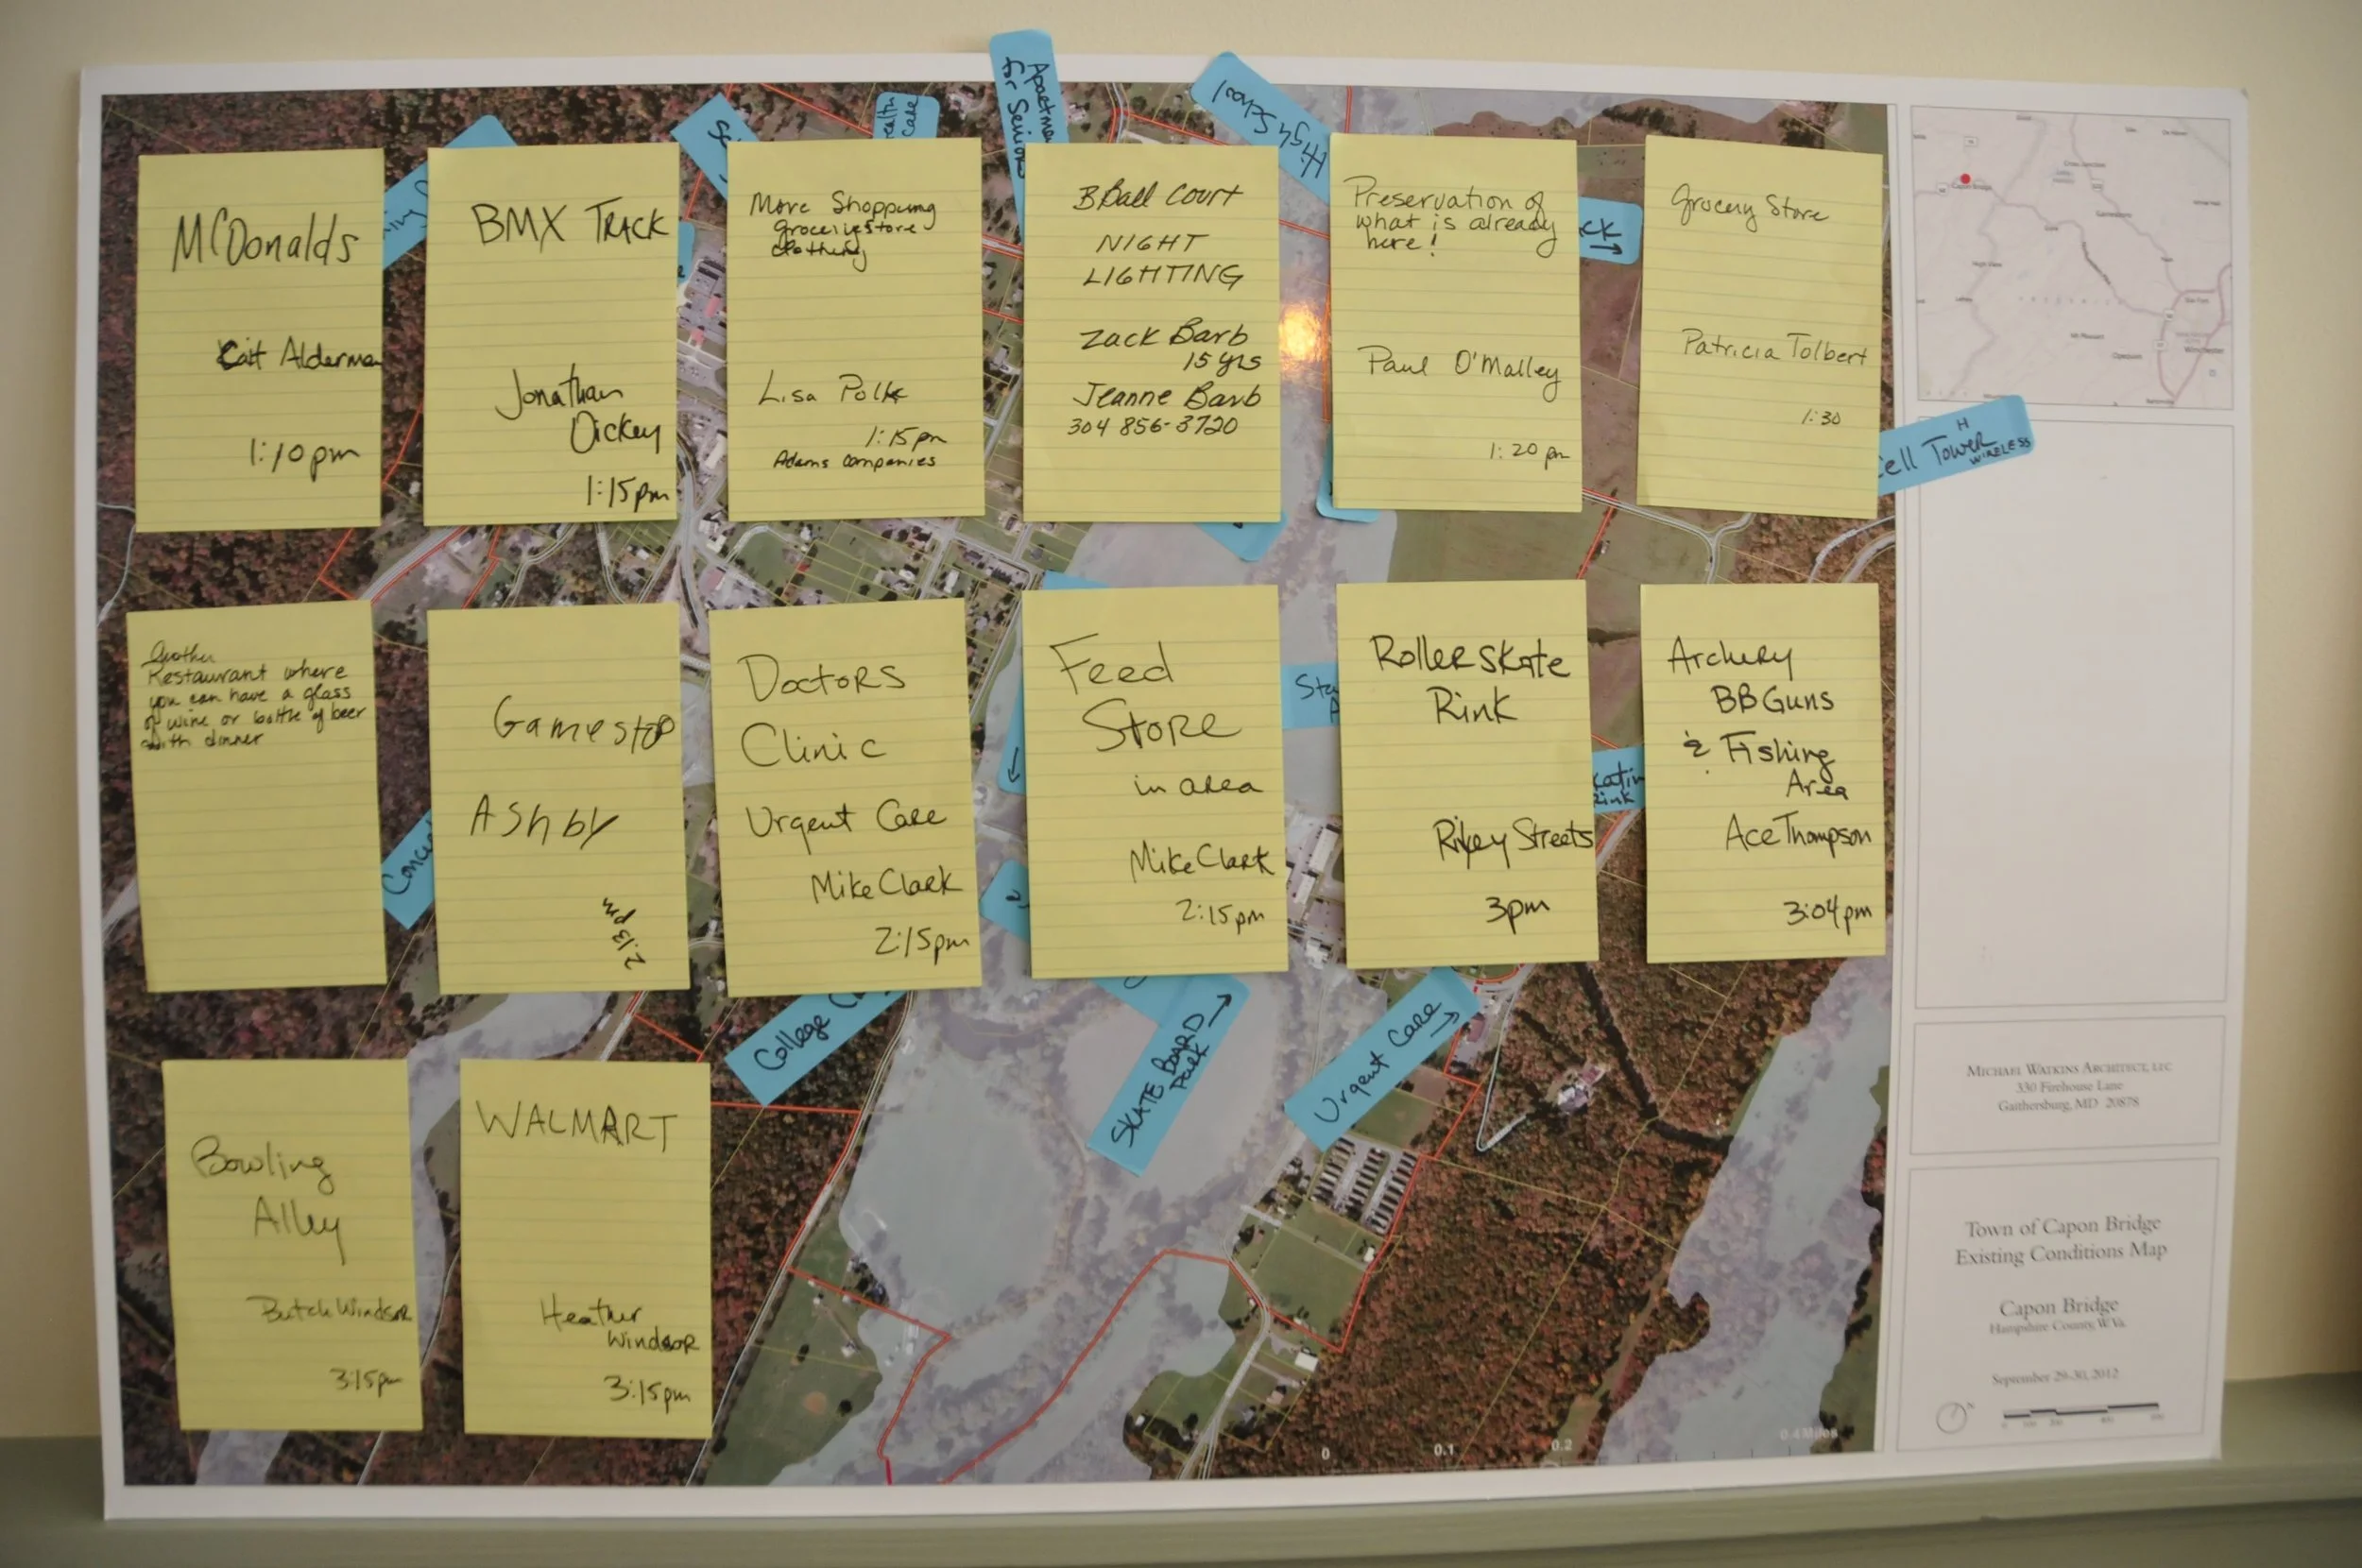 McDonalds
Cait Alderman
1:10pm
BMX TRACK
Jonathan
Dickey
1:15pm
More Shopping
Grocery Store
Clothing
Lisa Polk
1:15pm
Adams Companies
BBall Court
NIGHT
LIGHTING
Zack Barb
15 yrs
Jeanne Barb
304 856-3720
Preservation of
what is already
here!
Paul O'Malley
1:20 pm
Grocery Store
Patricia Tolbert
1:30
Another
Restaurant where
you can have a glass
of wine or bottle of beer
with dinner
Gamestop
Ashby
2:13 pm
Doctors
Clinic
Urgent Care
Mike Clark
2:15pm
Feed
Store
in area
Mike Clark
2:15pm
Rollerskate
Rink
Rikey Streets
3pm
Archery
BB Guns
& Fishing
Area
Ace Thompson
3:04pm
Bowling
Alley
Butch Windsor
3:15pm
WALMART
Heather
Windsor
3:15pm
Care
for Seniors
High School
Cell Tower
H
WIRELESS
Rink
College
SKATE BOARD
Park
Urgent Care
Capon Bridge
MICHAEL WATKINS ARCHITECT, LLC
330 Firehouse Lane
Gaithersburg, MD 20878
Town of Capon Bridge
Existing Conditions Map
Capon Bridge
Hampshire County, W.Va.
September 29-30, 2012
0 0.1 0.2 0.4 Miles